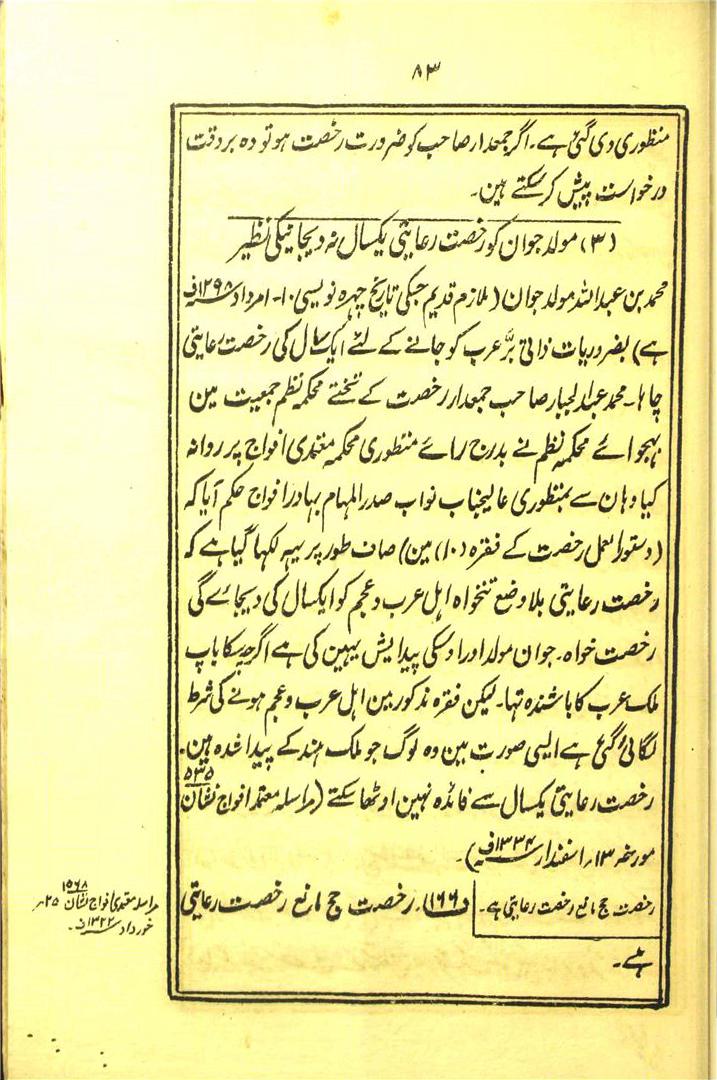 ۸۳
منظوری دی گئی ہے۔ اگر جمعدار صاحب کو ضرورت رخصت ہو تو وہ بروقت
درخواست پیش کر سکتے ہین۔
(۳) مولد جوان کو رخصت رعایتی یکسال نہ دیجانیکی نظیر
محمد بن عبداللہ مولد جوان (ملازم قدیم جسکی تاریخ چہرہ نویسی ۱۰۔ امرداد ۱۲۹۸ف
ہے) بضروریات ذاتی برّ عرب کو جانے کے لئے ایکسال کی رخصت رعایتی
چاہا۔ محمد عبدالجبار صاحب جمعدار رخصت کے تختے محکمہ نظم جمعیت مین
بہجوائے محکمہ نظم نے بدرج رائے منظوری محکمہ معتمدی افواج پر روانہ
کیا وہان سے بمنظوری عالیجناب نواب صدر المہام بہادر افواج حکم آیا کہ
(دستور العمل رخصت کے فقرہ (۱۰) مین) صاف طور پر یہہ لکہا گیا ہے کہ
رخصت رعایتی بلا وضع تنخواہ اہل عرب و عجم کو ایکسال کی دیجائے گی
رخصت خواہ۔ جوان مولد اور اوسکی پیدایش یہین کی ہے اگرچہ جسکا باپ
ملک عرب کا باشندہ تہا۔ لیکن فقرہ مذکور مین اہل عرب و عجم ہونے کی شرط
لگائی گئی ہے ایسی صورت مین وہ لوگ جو ملک ہند کے پیدا شدہ ہین۔
رخصت رعایتی یکسال سے فائدہ نہین اوٹھا سکتے (مراسلہ معتمد افواج نشان ۵۳۵
مورخہ ۱۳؍ اسفندار ۱۳۳۴ف)۔
رخصت حج مانع رخصت رعایتی ہے۔
(۱۶۶) رخصت حج مانع رخصت رعایتی
ہے۔
مراسلہ معتمدی افواج نشان ۱۵۶۸ ۲۵؍
خورداد ۱۳۲۲ف۔